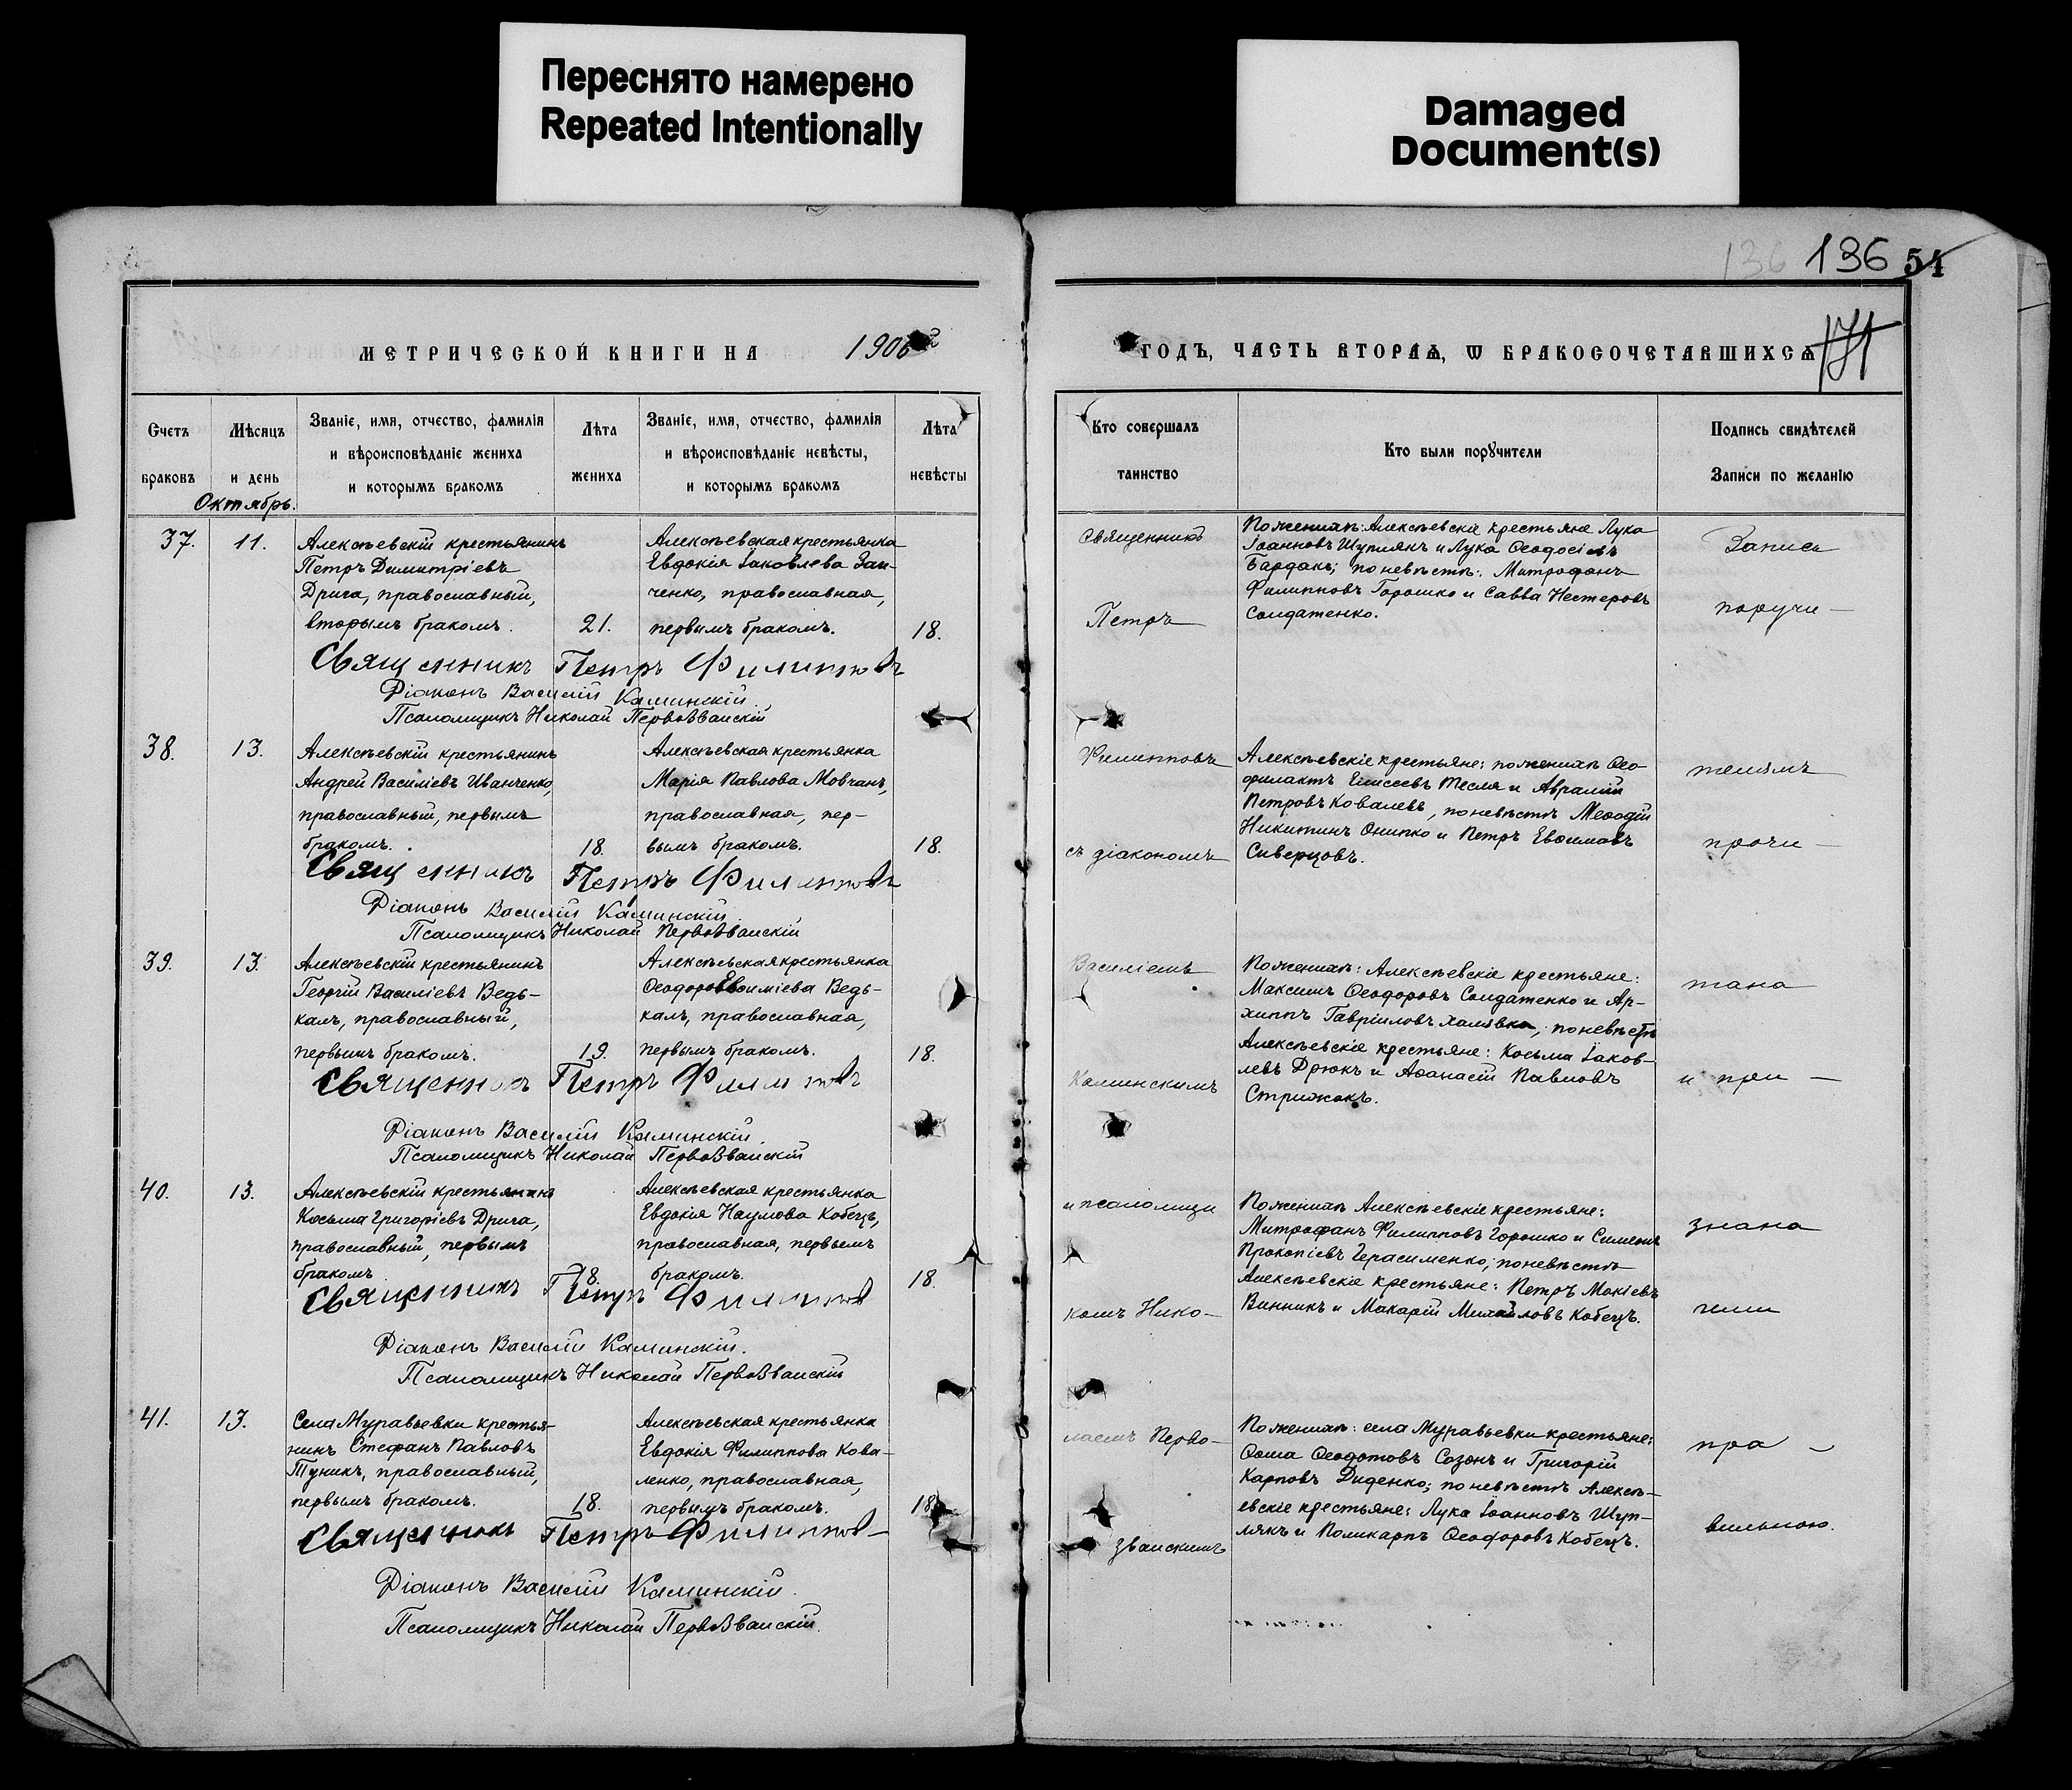 Переснято намерено
Repeated Intentionally
Damaged
Document(s)
136 136 54
МЕТРИЧЕСКОЙ КНИГИ НА 1906
ГОДЪ, ЧАСТЬ ВТОРАѦ, Ѡ БРАКОСОЧЕТАВШИХСѦ
171
Счетъ браковъ
Мѣсяцъ и день
Званіе, имя, отчество, фамилія и вѣроисповѣданіе жениха и которымъ бракомъ
Лѣта жениха
Званіе, имя, отчество, фамилія и вѣроисповѣданіе невѣсты, и которымъ бракомъ
Лѣта невѣсты
Кто совершалъ таинство
Кто были поручители
Подпись свидѣтелей Записи по желанію
Октябрь.
37. 11.
Алексѣевскій крестьянинъ
Петръ Димитріевъ
Дрига, православный,
вторымъ бракомъ. 21.
Алексѣевская крестьянка
Евдокія Іаковлева Заи-
ченко, православная,
первымъ бракомъ. 18.
Священникъ Петръ Филипповъ
Діаконъ Василій Каминскій.
Псаломщикъ Николай Первозванскій
Священникъ
Петръ
По женихѣ: Алексѣевскіе крестьяне Лука
Іоанновъ Шуплякъ и Лука Ѳеодосіевъ
Бардакъ; по невѣстѣ: Митрофанъ
Филипповъ Горошко и Савва Нестеровъ
Солдатенко.
Запись
поручи-
38. 13.
Алексѣевскій крестьянинъ
Андрей Василіевъ Иванченко,
православный, первымъ
бракомъ. 18.
Алексѣевская крестьянка
Марія Павлова Мовчанъ,
православная, пер-
вымъ бракомъ. 18.
Священникъ Петръ Филипповъ
Діаконъ Василій Каминскій.
Псаломщикъ Николай Первозванскій
Филипповъ
съ діакономъ
Алексѣевскіе крестьяне: по женихѣ Ѳео-
филактъ Елисеевъ Тесля и Аврамій
Петровъ Ковалевъ, по невѣстѣ Меѳодій
Никитинъ Онипко и Петръ Евѳимовъ
Сиверцовъ.
телямъ
прочи-
39. 13.
Алексѣевскій крестьянинъ
Георгій Василіевъ Ведь-
калъ, православный,
первымъ бракомъ. 19.
Алексѣевская крестьянка
Ѳеодора Евѳиміева Ведь-
калъ, православная,
первымъ бракомъ. 18.
Священникъ Петръ Филипповъ
Діаконъ Василій Каминскій.
Псаломщикъ Николай Первозванскій
Василіемъ
Каминскимъ
По женихѣ: Алексѣевскіе крестьяне:
Максимъ Ѳеодоровъ Солдатенко и Ар-
хиппъ Гавріиловъ Халявка; по невѣстѣ
Алексѣевскіе крестьяне: Косьма Іаков-
левъ Дрюкъ и Аѳанасій Павловъ
Стрижакъ.
тана
и при-
40. 13.
Алексѣевскій крестьянинъ
Косьма Григоріевъ Дрига,
православный, первымъ
бракомъ 18.
Алексѣевская крестьянка
Евдокія Наумова Кобецъ,
православная, первымъ
бракомъ. 18.
Священникъ Петръ Филипповъ
Діаконъ Василій Каминскій.
Псаломщикъ Николай Первозванскій
и псаломщи
комъ Нико-
По женихѣ Алексѣевскіе крестьяне:
Митрофанъ Филипповъ Горошко и Симеонъ
Прокопіевъ Герасименко; по невѣстѣ
Алексѣевскіе крестьяне: Петръ Мокіевъ
Винникъ и Макарій Михаиловъ Кобецъ.
знана
ими
41. 13.
Села Муравьевки крестья-
нинъ Стефанъ Павловъ
Туникъ, православный,
первымъ бракомъ. 18.
Алексѣевская крестьянка
Евдокія Филиппова Кова-
ленко, православная,
первымъ бракомъ. 18.
Священникъ Петръ Филипповъ
Діаконъ Василій Каминскій.
Псаломщикъ Николай Первозванскій.
лаемъ Перво-
званскимъ
По женихѣ: села Муравьевки крестьяне:
Ѳома Ѳеодотовъ Созонъ и Григорій
Карповъ Диденко; по невѣстѣ Алексѣ-
евскіе крестьяне: Лука Іоанновъ Шуп-
лякъ и Поликарпъ Ѳеодоровъ Кобецъ.
пра-
вильною.